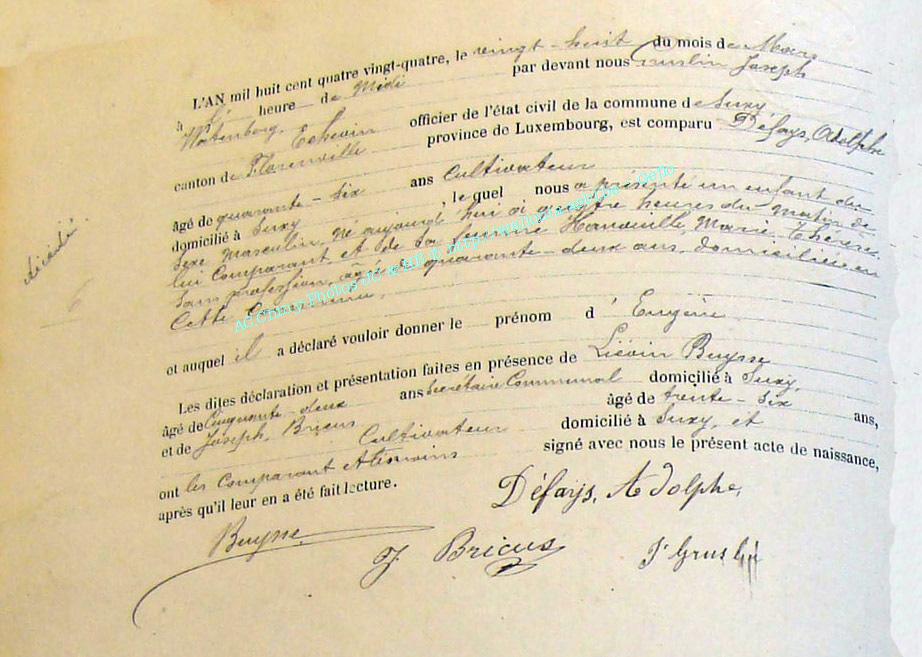 L'AN mil huit cent quatre vingt-quatre, le vingt-huit du mois de Mars
à l' heure de Midi par devant nous Gruslin Joseph
Echevin officier de l'état civil de la commune de Suxy
canton de Florenville province de Luxembourg, est comparu Défays, Adolphe
âgé de quarante-six ans Cultivateur
domicilié à Suxy, le quel nous a présenté un enfant du
sexe masculin, né aujourd'hui à quatre heures du matin de
lui Comparant et de sa femme Marie-Thérèse
sans profession, âgée de quarante-deux ans, domiciliée en
cette Commune,
et auquel il a déclaré vouloir donner le prénom d' Eugène
Les dites déclaration et présentation faites en présence de Liévin Buysse
âgé de Cinquante-deux ans Secrétaire Communal domicilié à Suxy,
et de Joseph, Bricus âgé de trente-six ans,
Cultivateur domicilié à Suxy, et
ont les Comparant et témoins signé avec nous le présent acte de naissance,
après qu'il leur en a été fait lecture.
Défays, Adolphe,
Buysse
J Bricus
J Gruslin
décédé.
6